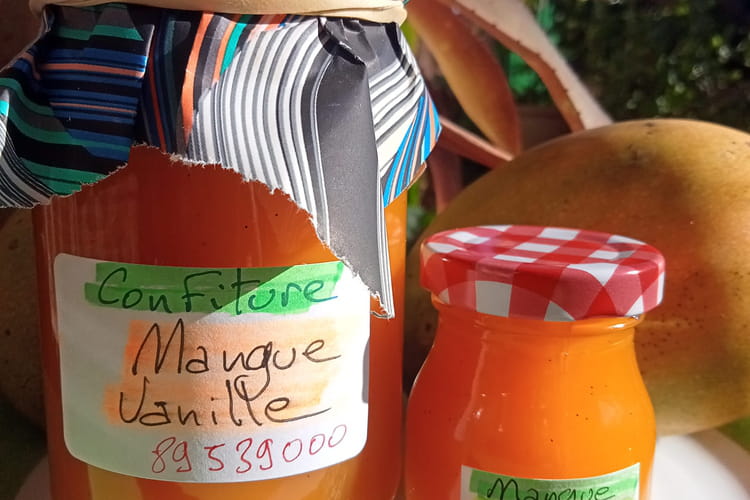 Confiture
Mangue
Vanille
89539000
Mangue